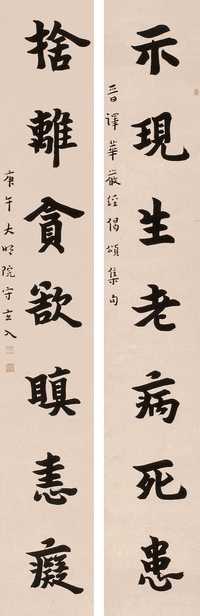 示現生老病死患
晉譯華嚴經偈頌集句
捨離貪欲瞋恚癡
庚午大明院玄入